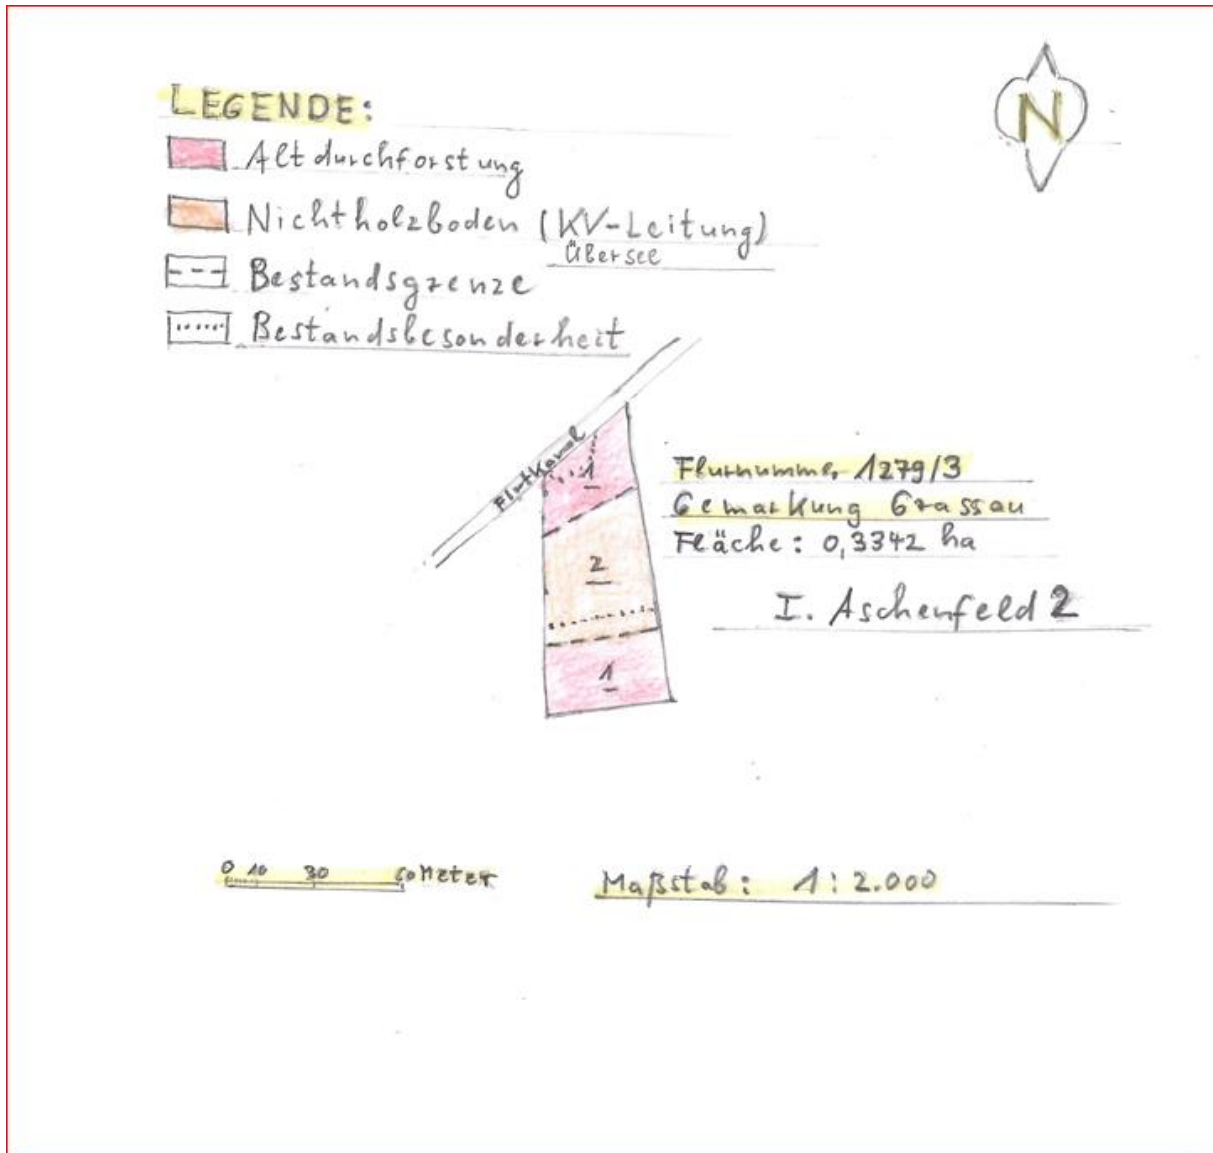 N
LEGENDE:
Altdurchforstung
Nichtholzboden (KV-Leitung)
Übersee
Bestandsgrenze
Bestandsbesonderheit
Flutkanal
1
Flurnummer 1279/3
Gemarkung Grassau
Fläche: 0,3342 ha
2
I. Aschenfeld 2
1
0 10 30 60 Meter
Maßstab: 1:2.000